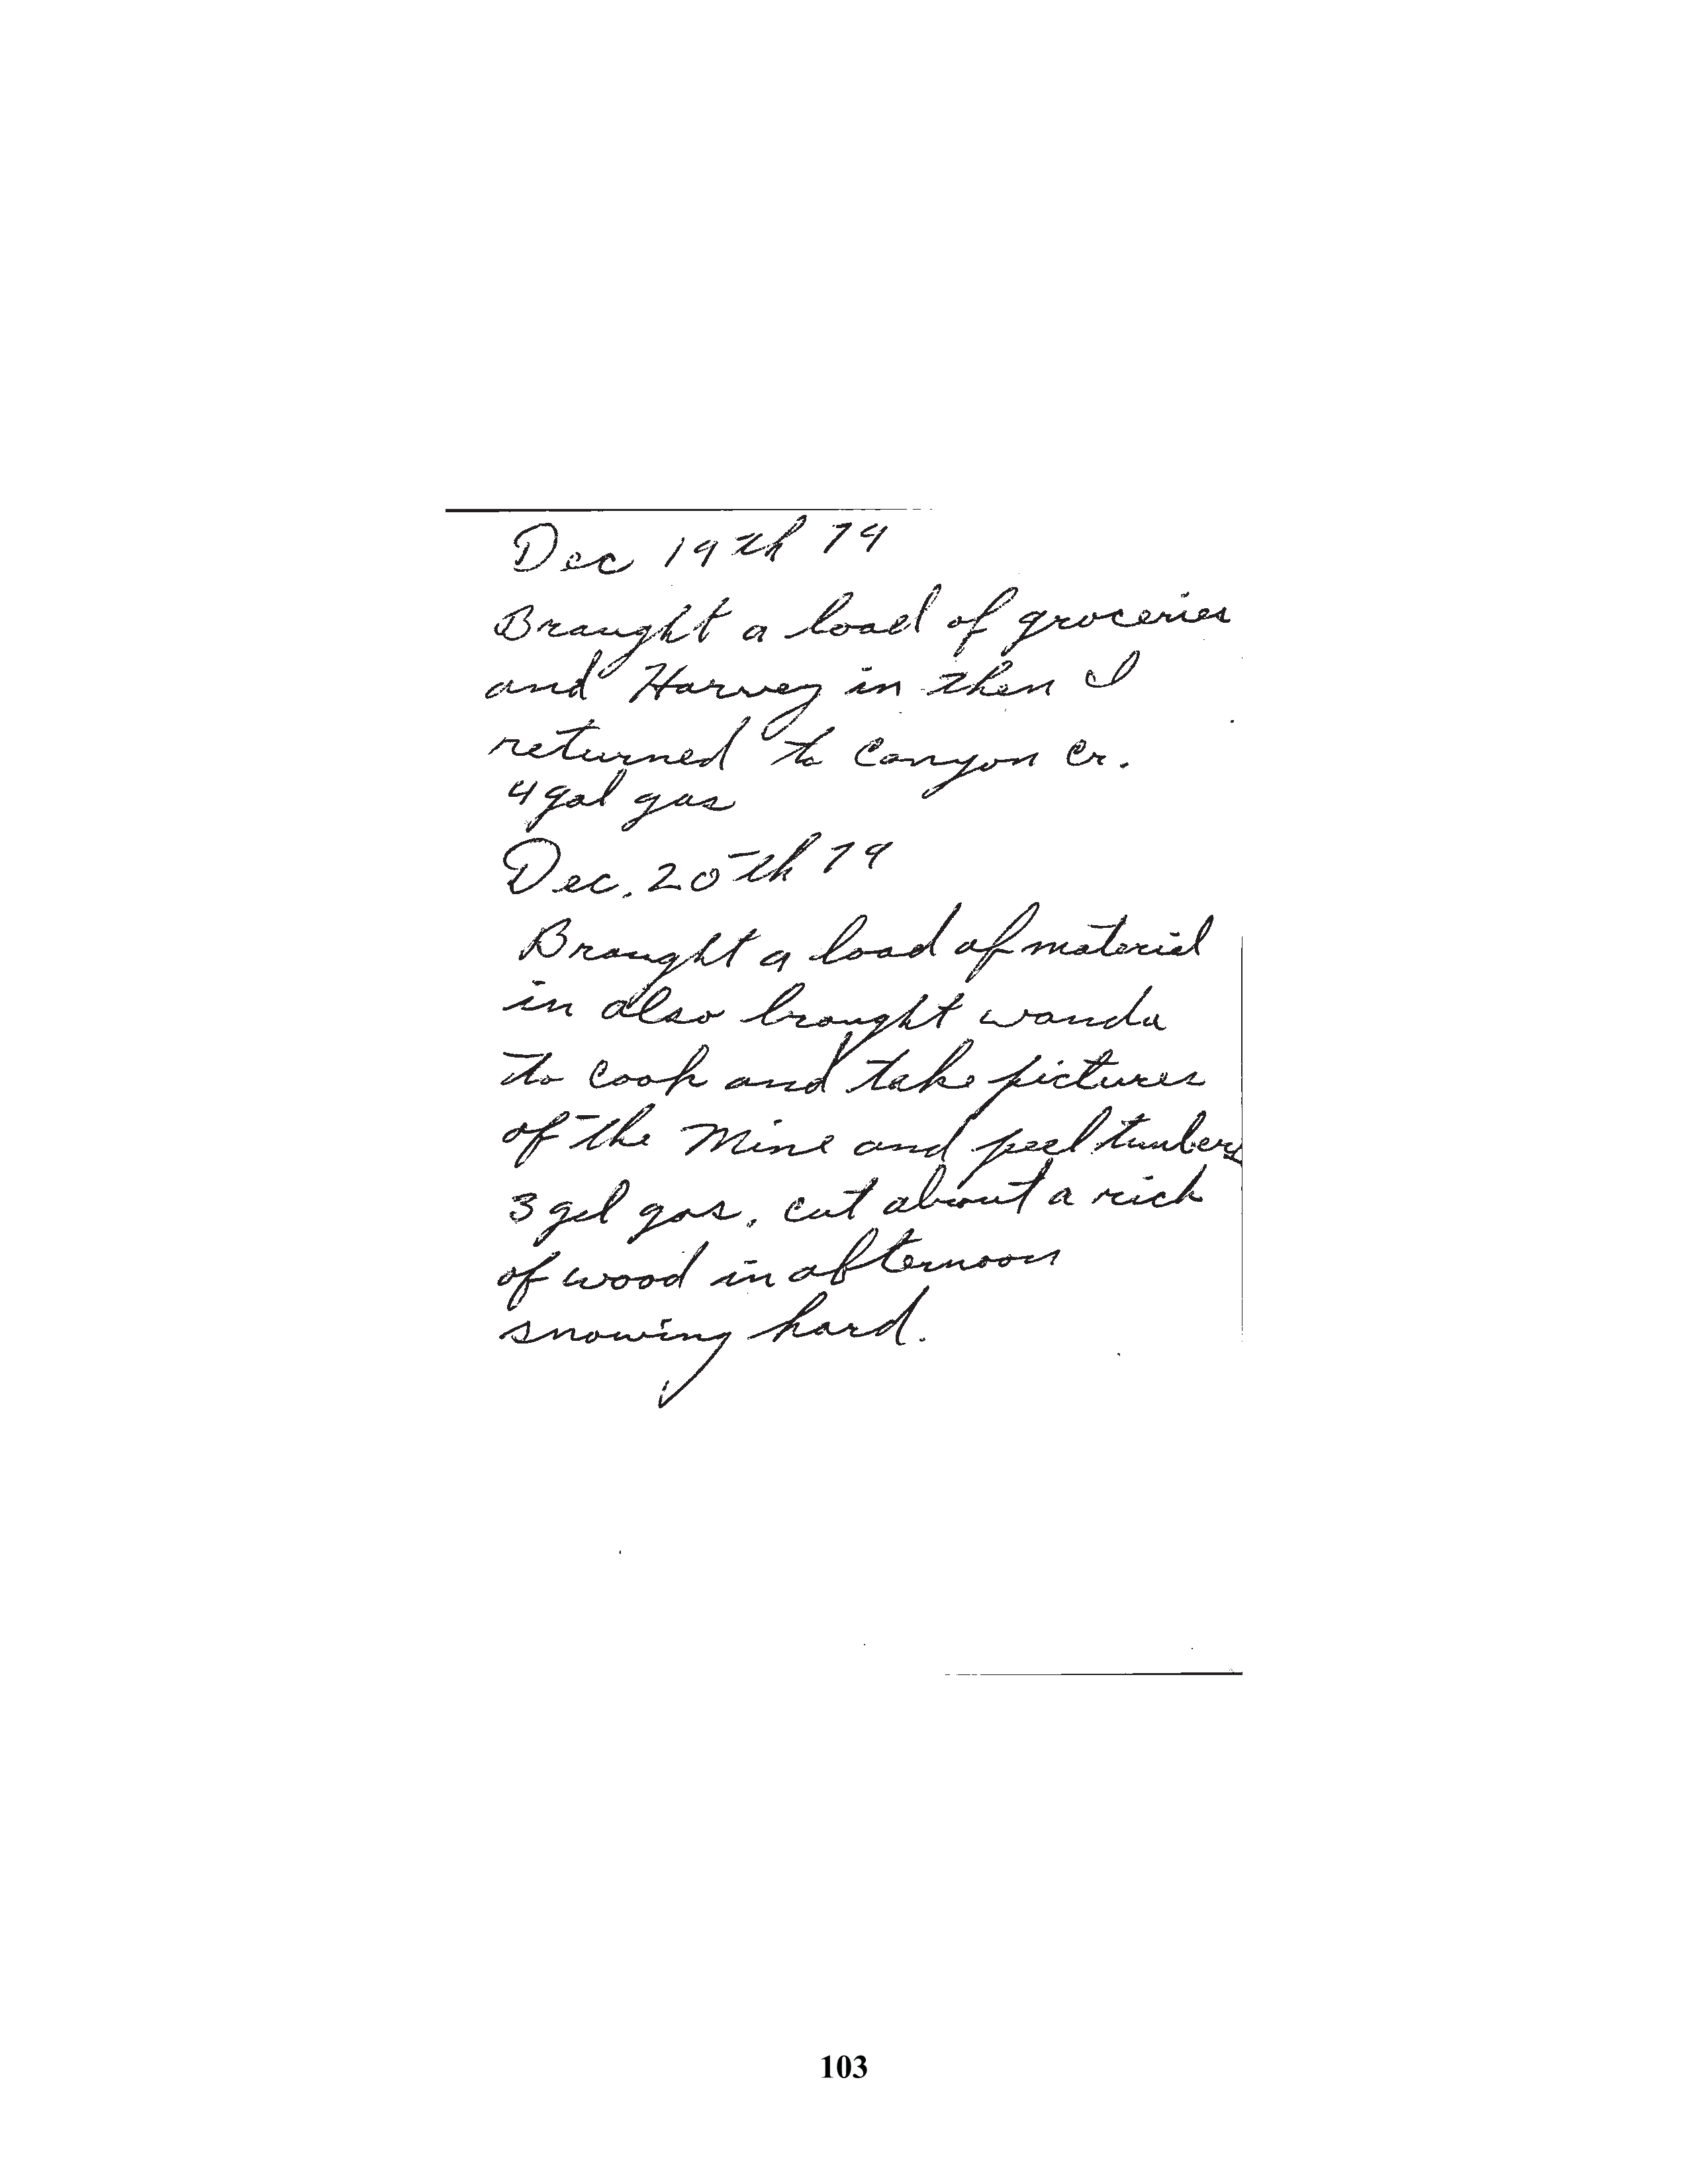 Dec 19th 79
Braught a load of groceries
and Harvey in then I
returned to Canyon Cr.
4 gal gas
Dec. 20th 79
Brought a load of material
in also brought wanda
to cook and take pictures
of the Mine and peel timbers
3 gal gas. cut about a rick
of wood in afternoon
snowing hard.
103